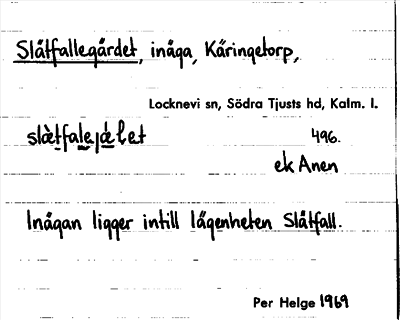 Slåtfallegärdet, inäga, Käringetorp,
Locknevi sn, Södra Tjusts hd, Kalm. l.
496.
ek Anen
Inägan ligger intill lägenheten Slåtfall.
Per Helge 1969